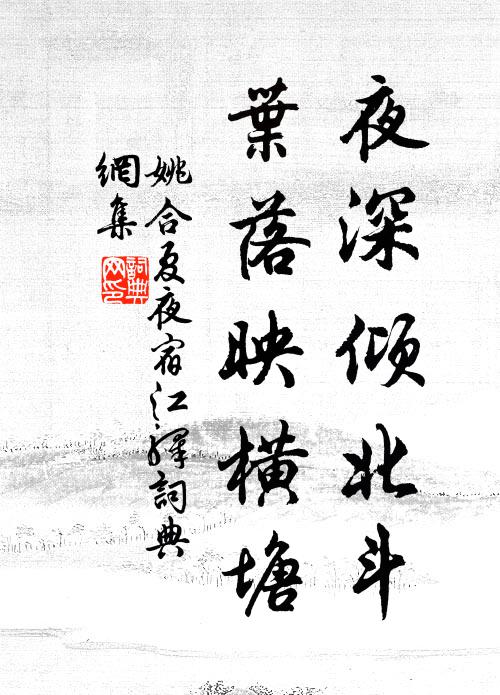 夜深倾北斗
葉落映橫塘
姚合夏夜宿江驛詞典
網集
詞典
网印